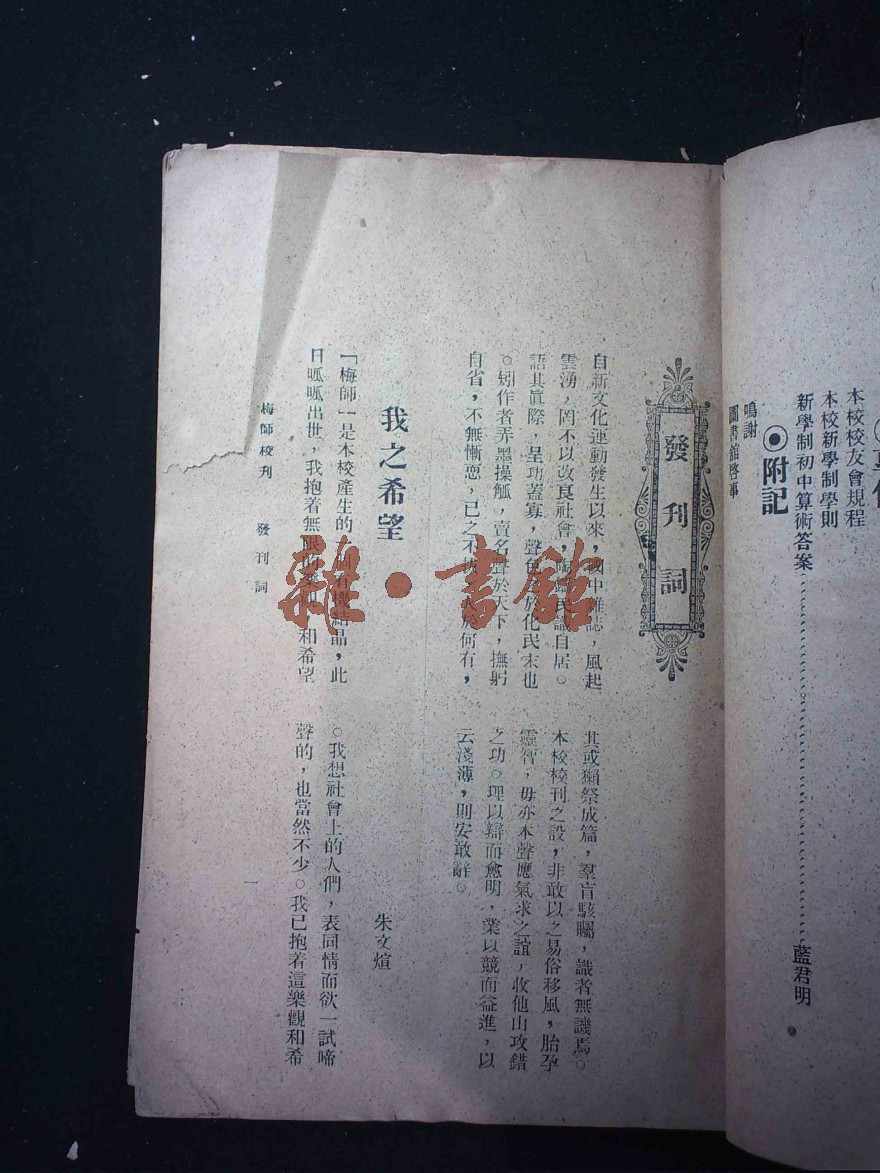 本校校友會規程
本校新學制學則
新學制初中算術答案
藍君明
附記
鳴謝
圖書舘啓事
發刊詞
自新文化運動發生以來，國中雜誌，風起
雲湧，罔不以改良社會，民識自居。
語其眞際，呈功蓋寡，聲色之於化民末也
。矧作者弄墨操觚，賣名聲於天下，撫躬
自省，不無慚恧，已之不，人於何有，
其或獺祭成篇，羣盲駭矚，識者無譏焉。
本校校刊之設，非敢以之易俗移風，胎孕
靈智，毋亦本聲應氣求之誼，收他山攻錯
之功。理以辯而愈明，業以競而益進，以
云淺薄，則安敢辭。
我之希望
朱文煊
「梅師」是本校產生的一個有機結晶，此
日呱呱出世，我抱着無限的樂觀和希望
。我想社會上的人們，表同情而欲一試啼
聲的，也當然不少。我已抱着這樂觀和希
梅師校刊 發刊詞
一
雜·書舘